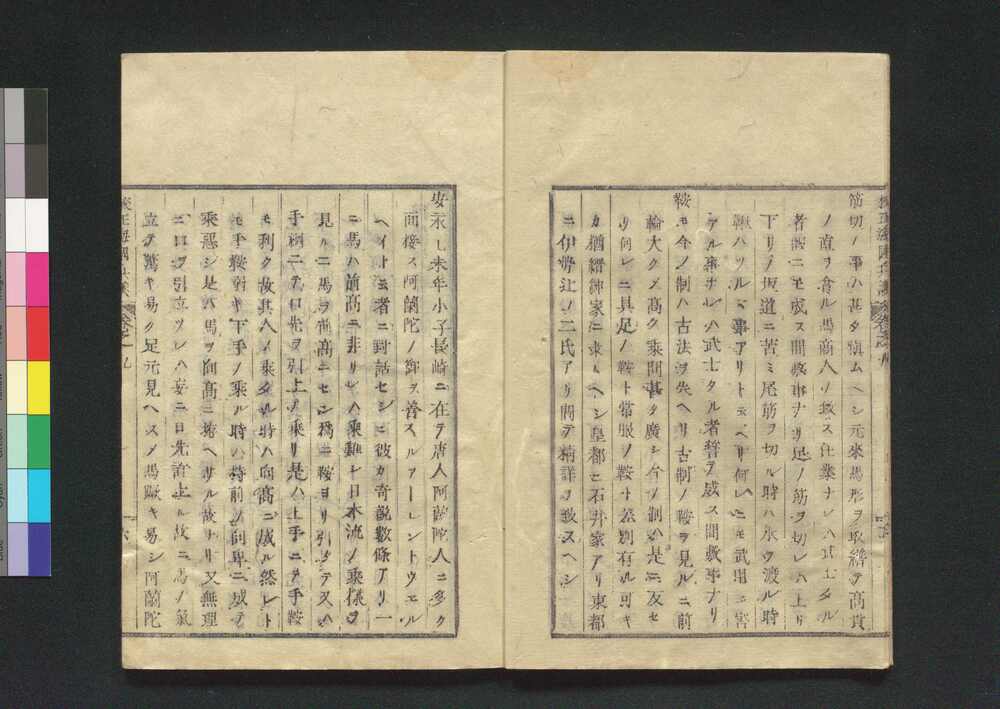 筋切ノ事ハ甚タ愼ムヘシ元來馬形ヲ取繕テ高貴
ノ直ヲ貪ル馬商人ノ致ス仕業ナレハ武士タル
者假ニモ成ス間敷事ナリ足ノ筋ヲ切レハ上リ
下リノ坂道ニ苦ミ尾筋ヲ切ル時ハ水ヲ渡ル時
ハツルヽ事アリト云ヘリ何レニモ武用ニ害
アル事ナレハ武士タル者誓テ成ス間敷事ナリ
鞍モ今ノ制ハ古法ヲ失ヘリ古制ノ鞍ヲ見ルニ前
輪大クメ高ク乘間甚タ廣シ今ノ制ハ是ニ反セ
リ何レニ具足ノ鞍ト常服ノ鞍ト差別有ル可キ
カ猶縉紳家ニ求ムヘシ皇都ニ石井家アリ東都
ニ伊勢辻ノ二氏アリ問テ精詳ヲ致スヘシ
安永乙未年小子長崎ニ在テ唐人阿蘭陀人ニ多ク
面接ス阿蘭陀ノ御ヲ善スルアーレントウエル
ヘイトニ者ニ對話セシニ彼カ奇說數條アリ一
ニ馬ハ前高ニ非リレハ乘難シ日本流ノ乘樣ヲ
見ルニ馬ヲ前高ニセン爲ニ鞍ヨリ引シテ又ハ
手綱ニテ口先ヲ引上テ乘リ是ハ上手ニテ手鞍
モ利ク故其人ノ乘タル時ハ向高ニ成ル然レト
モ手鞍對キ下手ノ乘ル時ハ持前ノ向卑ニ成テ
乘惡シ是ハ馬ヲ向高ニ拵ヘサル故ナリ又無理
ニ口ヲ引立ツレハ妄ニ口先許上ル故ニ馬ノ氣
立テ驚キ易ク足元見ヘスメ馬蹶キ易シ阿蘭陀